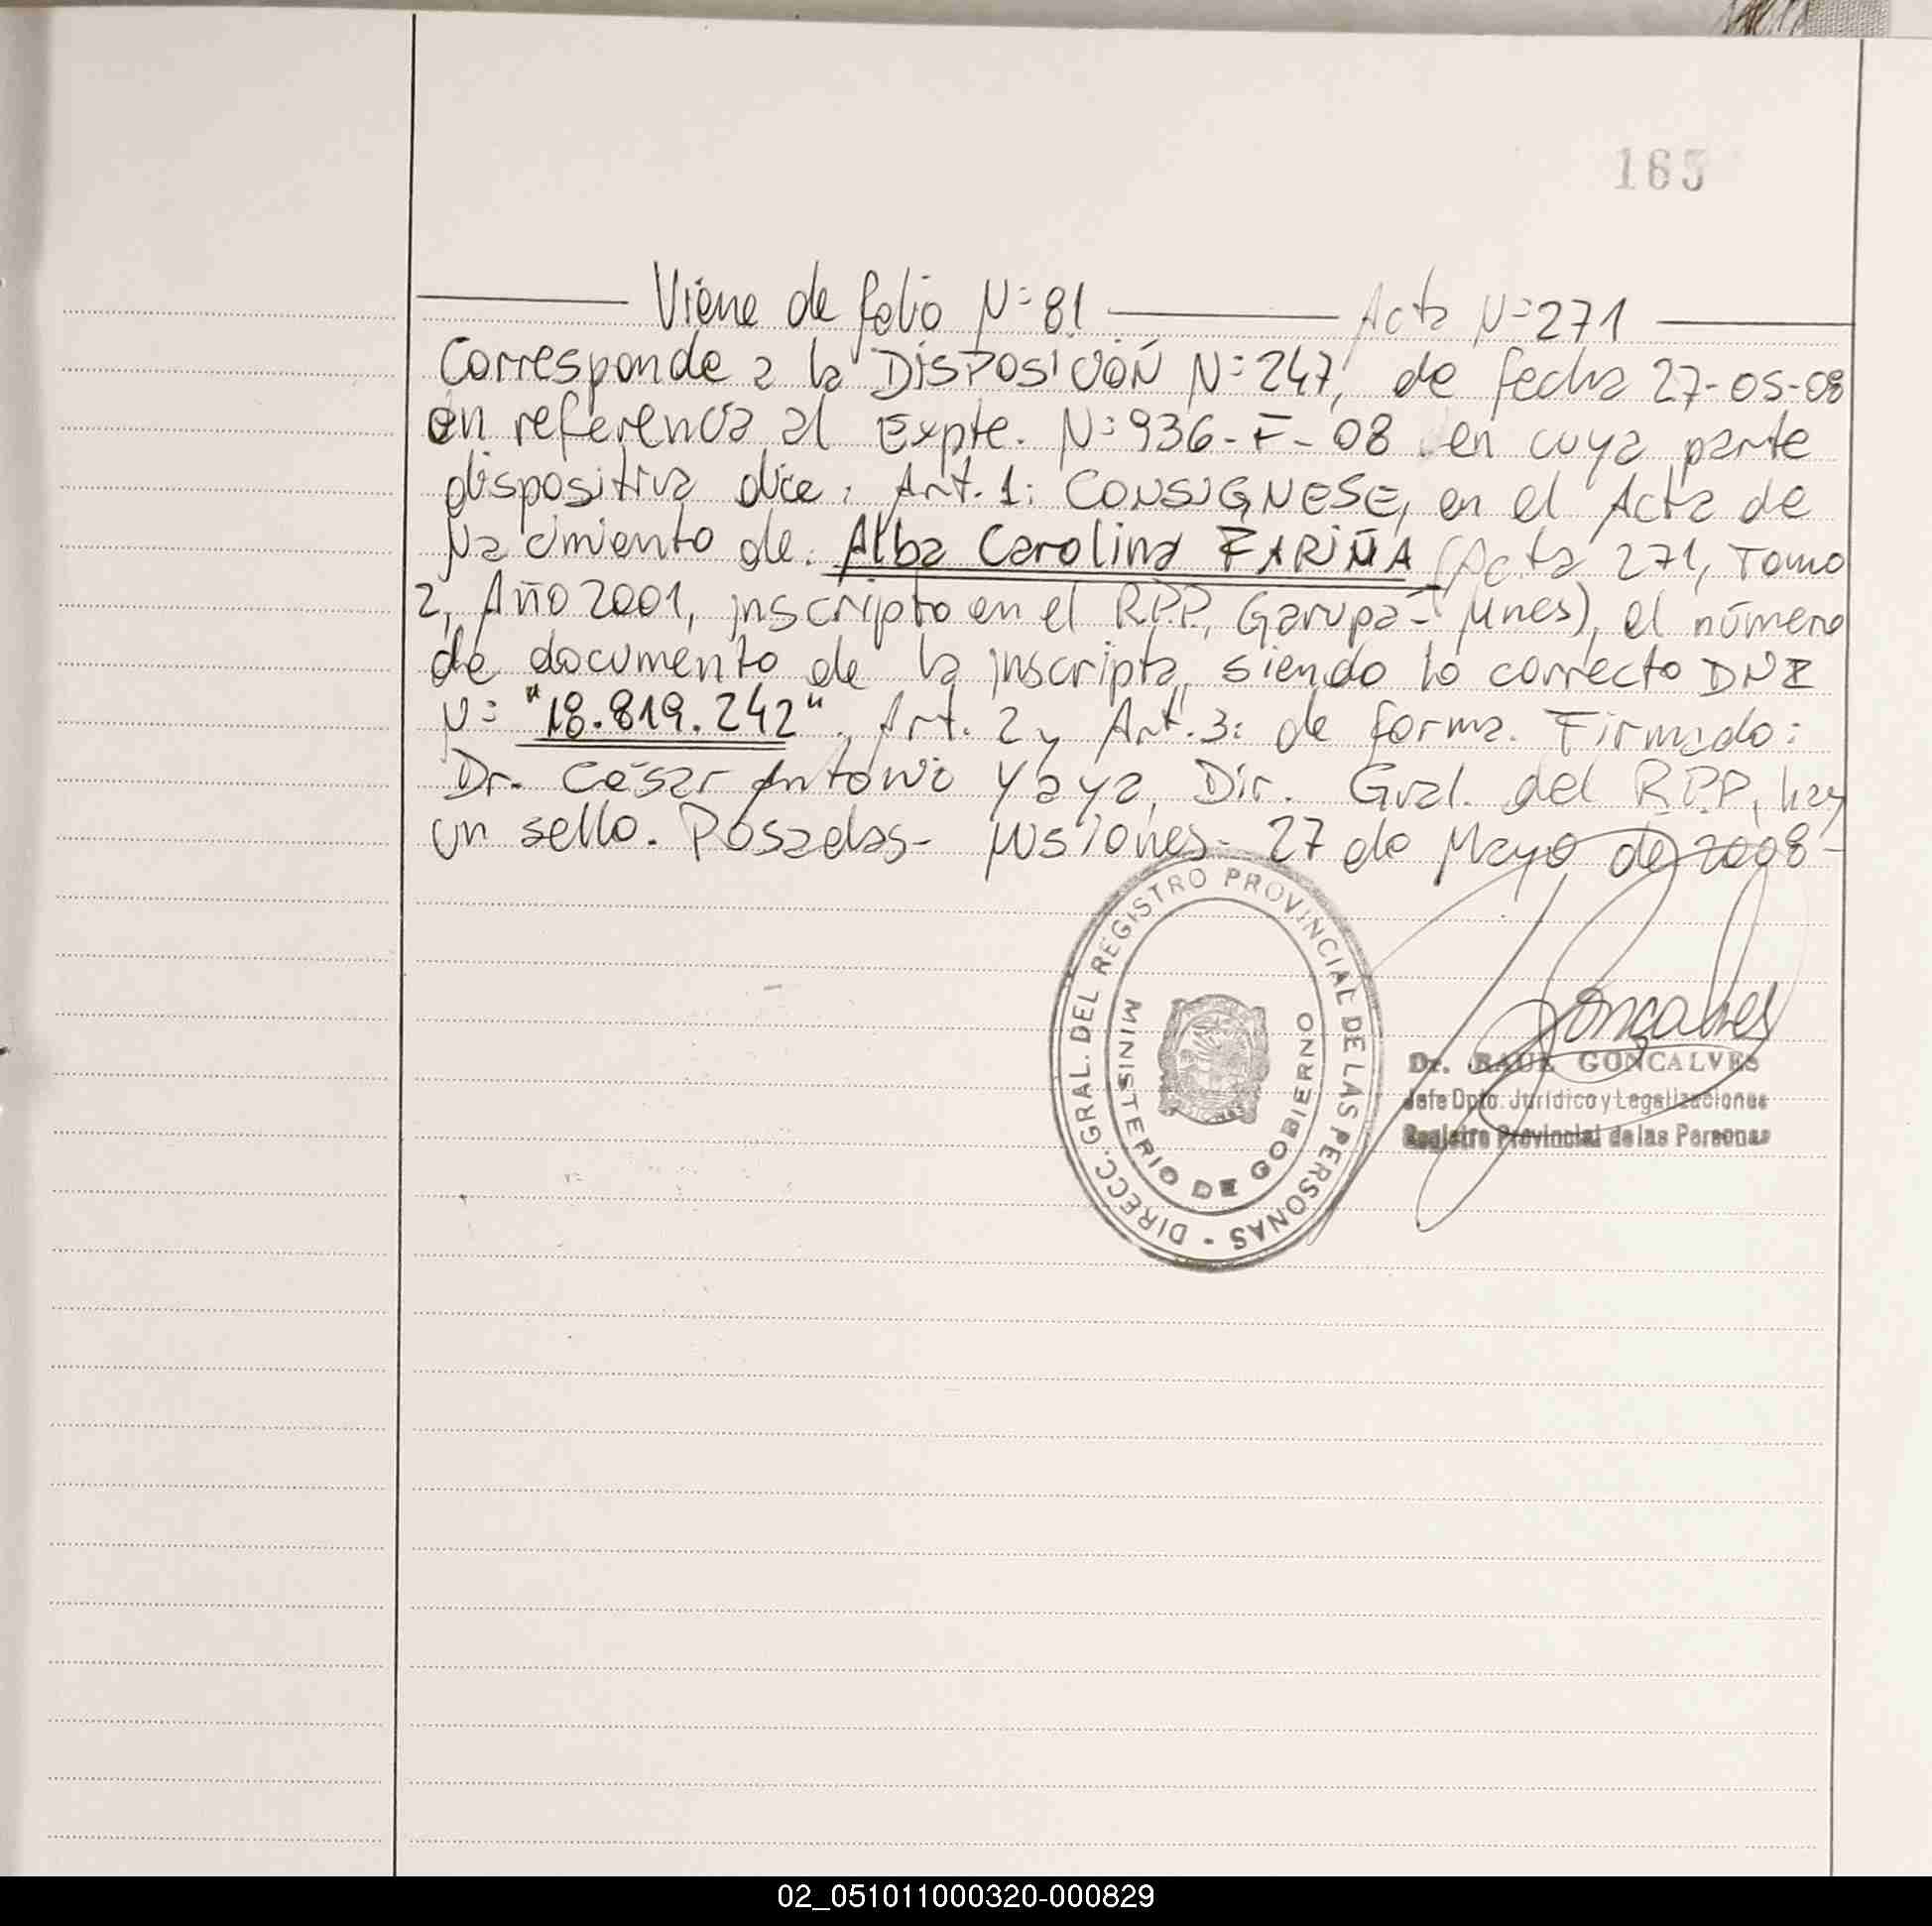 165
Viene de folio N=81 Acta N=271
Corresponde a la DISPOSICIÓN N=247, de fecha 27-05-08
en referencia al Expte. N=936-F-08 en cuya parte
dispositiva dice: Art.1: CONSIGNESE, en el Acta de
Nacimiento de: Alba Carolina FARIÑA (Acta 271, Tomo
2, Año 2001, inscripto en el R.P.P. Garupá- Mnes), el número
de documento de la inscripta, siendo lo correcto DNI
N= "18.819.242". Art. 2 y Art.3: de forma. Firmado:
Dr. César Antonio Yaya, Dir. Gral. del R.P.P, hay
un sello. Posadas- Misiones- 27 de Mayo de 2008-
DIRECC. GRAL. DEL REGISTRO PROVINCIAL DE LAS PERSONAS -
MINISTERIO DE GOBIERNO
Goncalves
Dr. RAUL GONCALVES
Jefe Dpto. Jurídico y Legalizaciones
Registro Provincial de las Personas
02_051011000320-000829